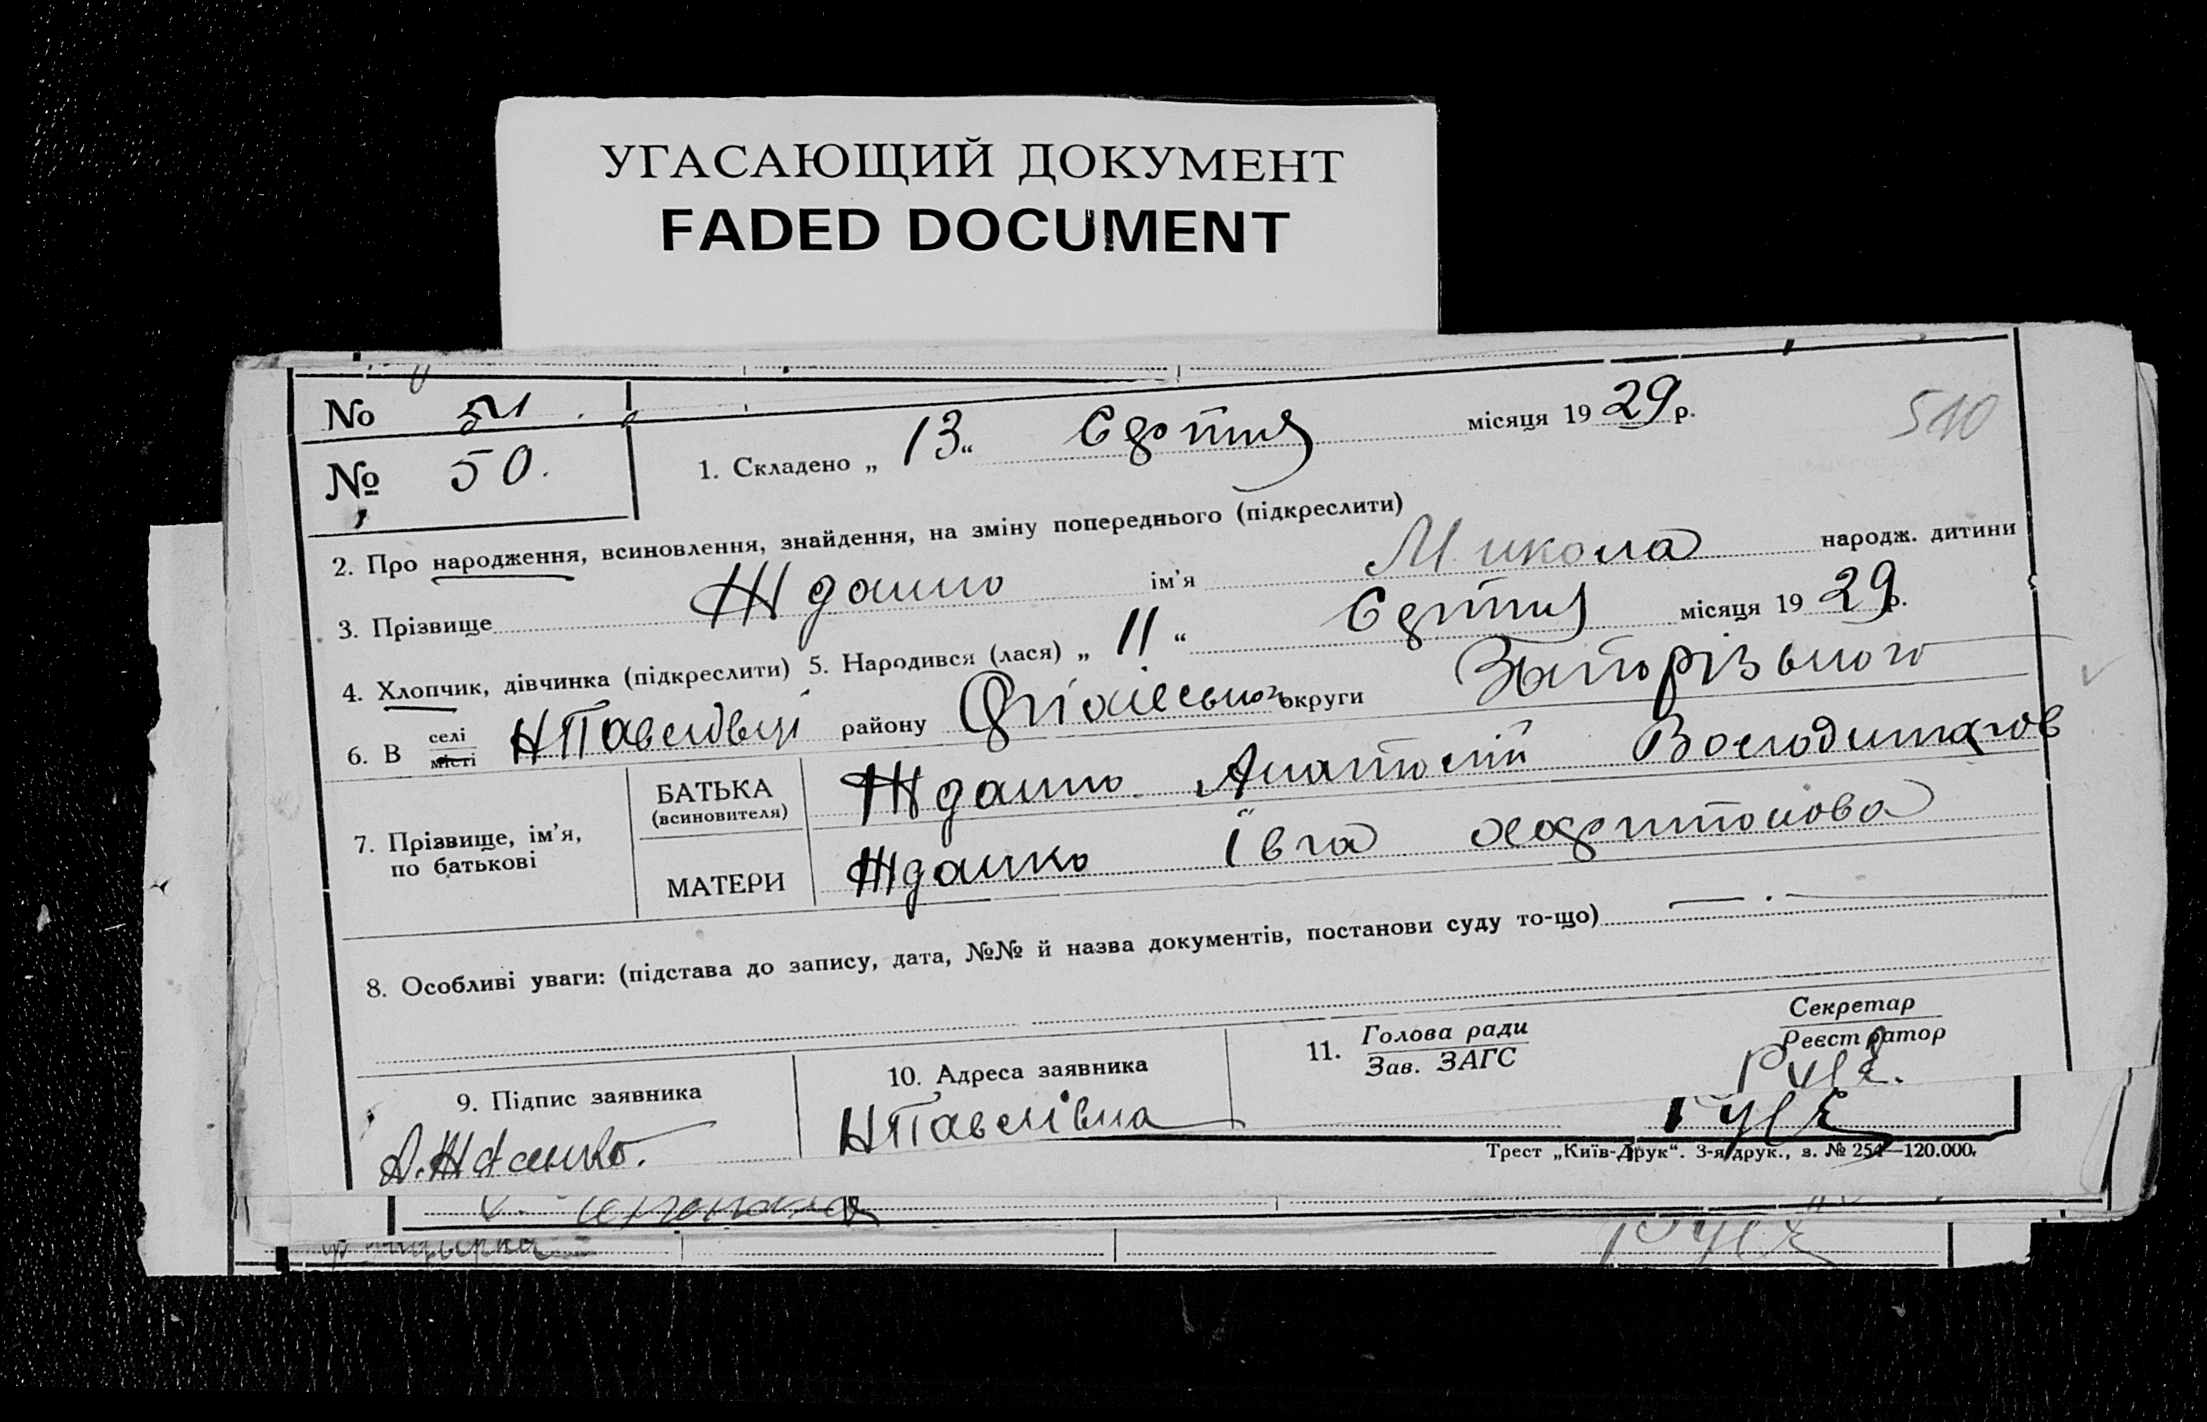 УГАСАЮЩИЙ ДОКУМЕНТ
FADED DOCUMENT
No 51
№ 50.
1. Складено „ 13 “ Серпня місяця 19 29 р.
510
2. Про народження, всиновлення, знайдення, на зміну попереднього (підкреслити)
3. Прізвище Жданко ім’я Микола народж. дитини
4. Хлопчик, дівчинка (підкреслити) 5. Народився (лася) „ 11 “ Серпня місяця 19 29 р.
6. В селі місті НПавлівці району округи Запорізького
7. Прізвище, ім’я, по батькові
БАТЬКА (всиновителя) Жданко Анатолій Володимиров
МАТЕРИ Жданко Івга Харитонова
8. Особливі уваги: (підстава до запису, дата, №№ й назва документів, постанови суду то-що) — . —
9. Підпис заявника
А. Жданко.
10. Адреса заявника
НПавлівка
11. Голова ради
Зав. ЗАГС
Секретар
Реєстратор
Трест „Київ-Друк“. 3-я друк., з. № 254—120.000.